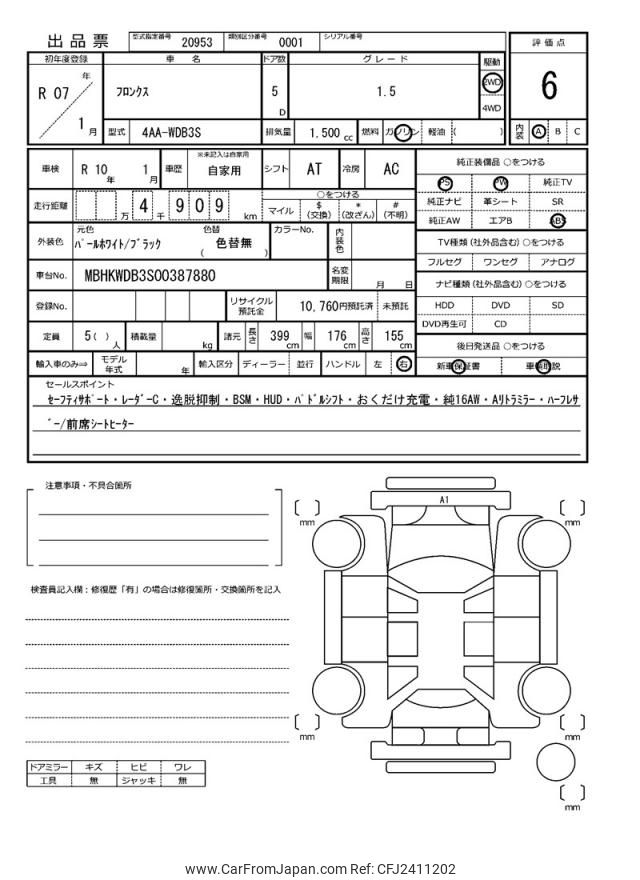 出品票 型式指定番号 20953 類別区分番号 0001 シリアル番号
評価点
6
内装 A B C
初年度登録 車名 ドア数 グレード 駆動
R 07 年 1 月 フロンクス 5 D 1.5 2WD 4WD
型式 4AA-WDB3S 排気量 1.500 cc 燃料 ガソリン 軽油 ( )
車検 R 10 年 1 月 車歴 ※未記入は自家用 自家用 シフト AT 冷房 AC
走行距離 万 4 千 9 0 9 km ○をつける
マイル $ (交換) * (改ざん) # (不明)
外装色 元色 パールホワイト/ブラック 色替 ( 色替無 ) カラーNo. 内装色
車台No. MBHKWDB3S00387880 名変期限 月 日
登録No. リサイクル預託金 10,760円預託済 未預託
定員 5 ( ) 人 積載量 kg 諸元 長さ 399 cm 幅 176 cm 高さ 155 cm
輸入車のみ⇒ モデル年式 年 輸入区分 ディーラー 並行 ハンドル 左 右
純正装備品 ○をつける
PS PW 純正TV
純正ナビ 革シート SR
純正AW エアB ABS
TV種類 (社外品含む) ○をつける
フルセグ ワンセグ アナログ
ナビ種類 (社外品含む) ○をつける
HDD DVD SD
DVD再生可 CD
後日発送品 ○をつける
新車保証書 車輌取説
セールスポイント
セーフティサポート・レーダーC・逸脱抑制・BSM・HUD・パドルシフト・おくだけ充電・純16AW・Aリトラミラー・ハーフレザ
ー/前席シートヒーター
注意事項・不具合箇所
検査員記入欄：修復歴「有」の場合は修復箇所・交換箇所を記入
ドアミラー キズ ヒビ ワレ
工具 無 ジャッキ 無
A1
mm
mm
mm
mm
mm
www.CarFromJapan.com Ref: CFJ2411202